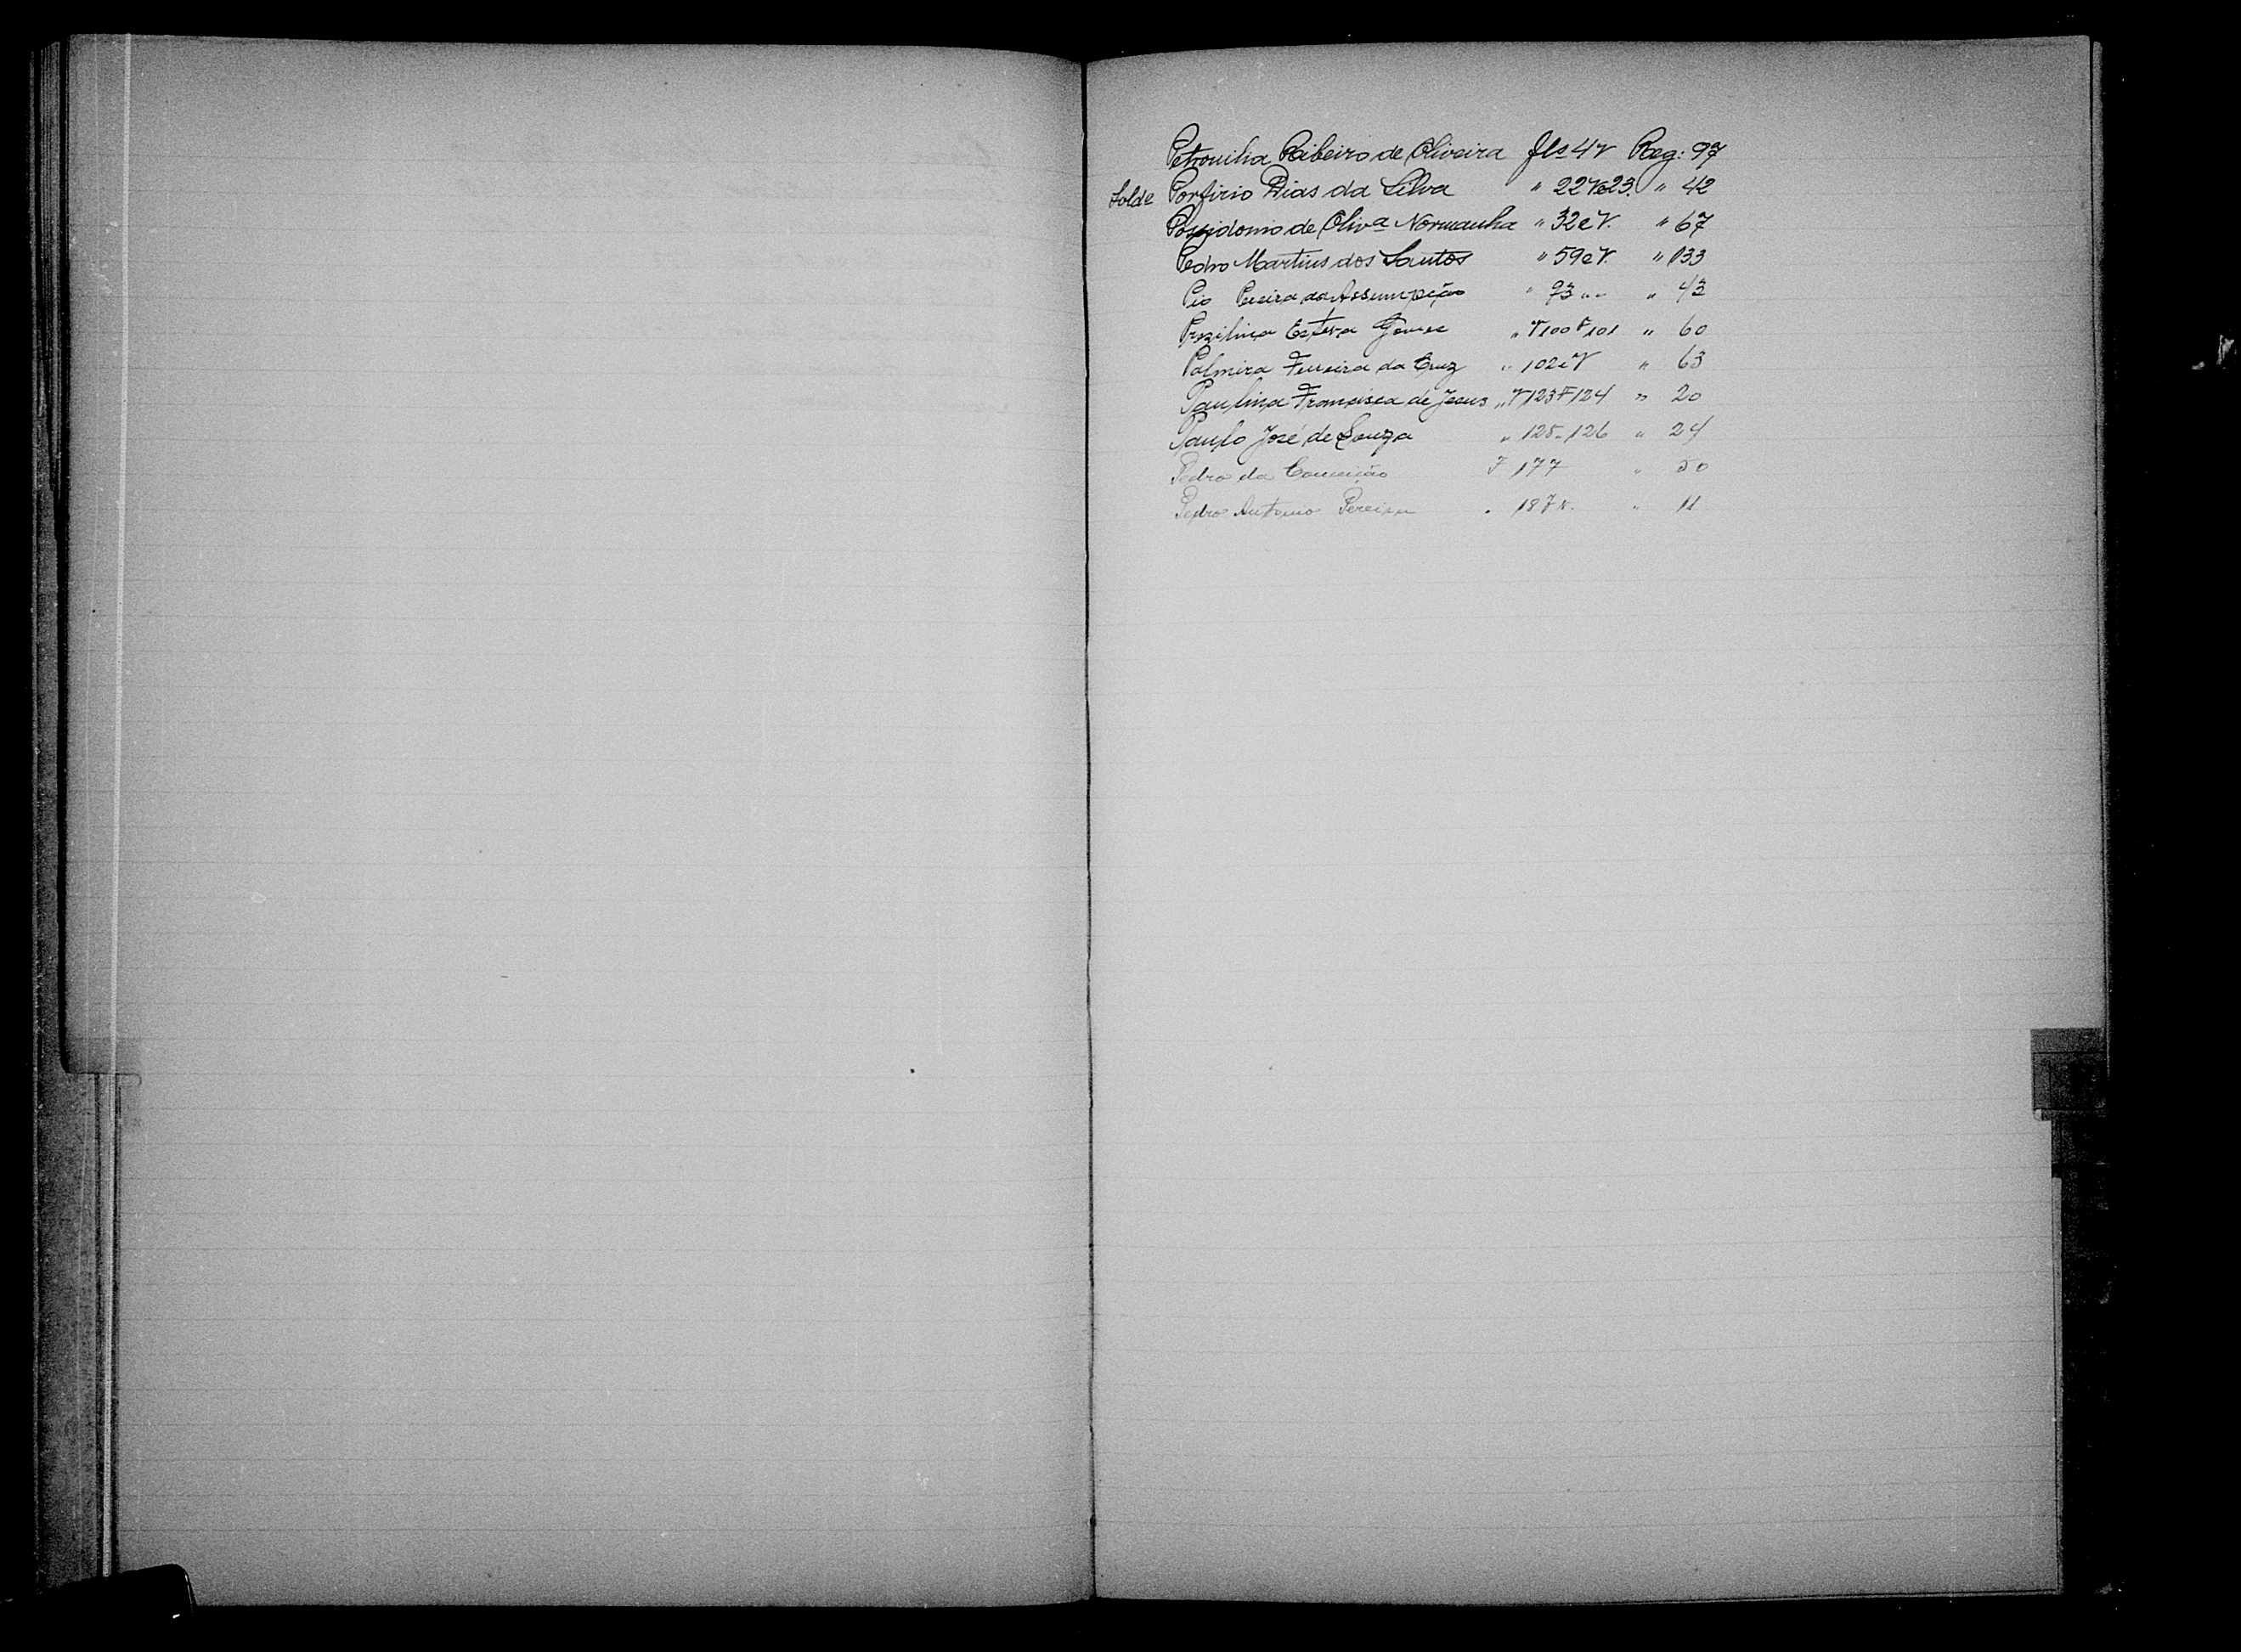 Petronilia Ribeiro de Oliveira fls 4 V Reg: 97
Sold.e Porfirio Dias da Silva " 22 Ve23. " 42
Possidonio de Oliv.a Normanha " 32 e V. " 67
Pedro Martins dos Santos " 59 e V. " 133
Pio Pereira da Assumpção " 93 " " " 43
Gomes " V100 F101 " 60
Palmira Ferreira da Cruz " 102 e V " 63
Paulina Francisca de Jesus " V123 F124 " 20
Paulo José de Souza " 125-126 " 24
Pedro da Conceição F 177 " 50
Pedro Antonio Pereira " 187 v. " 11